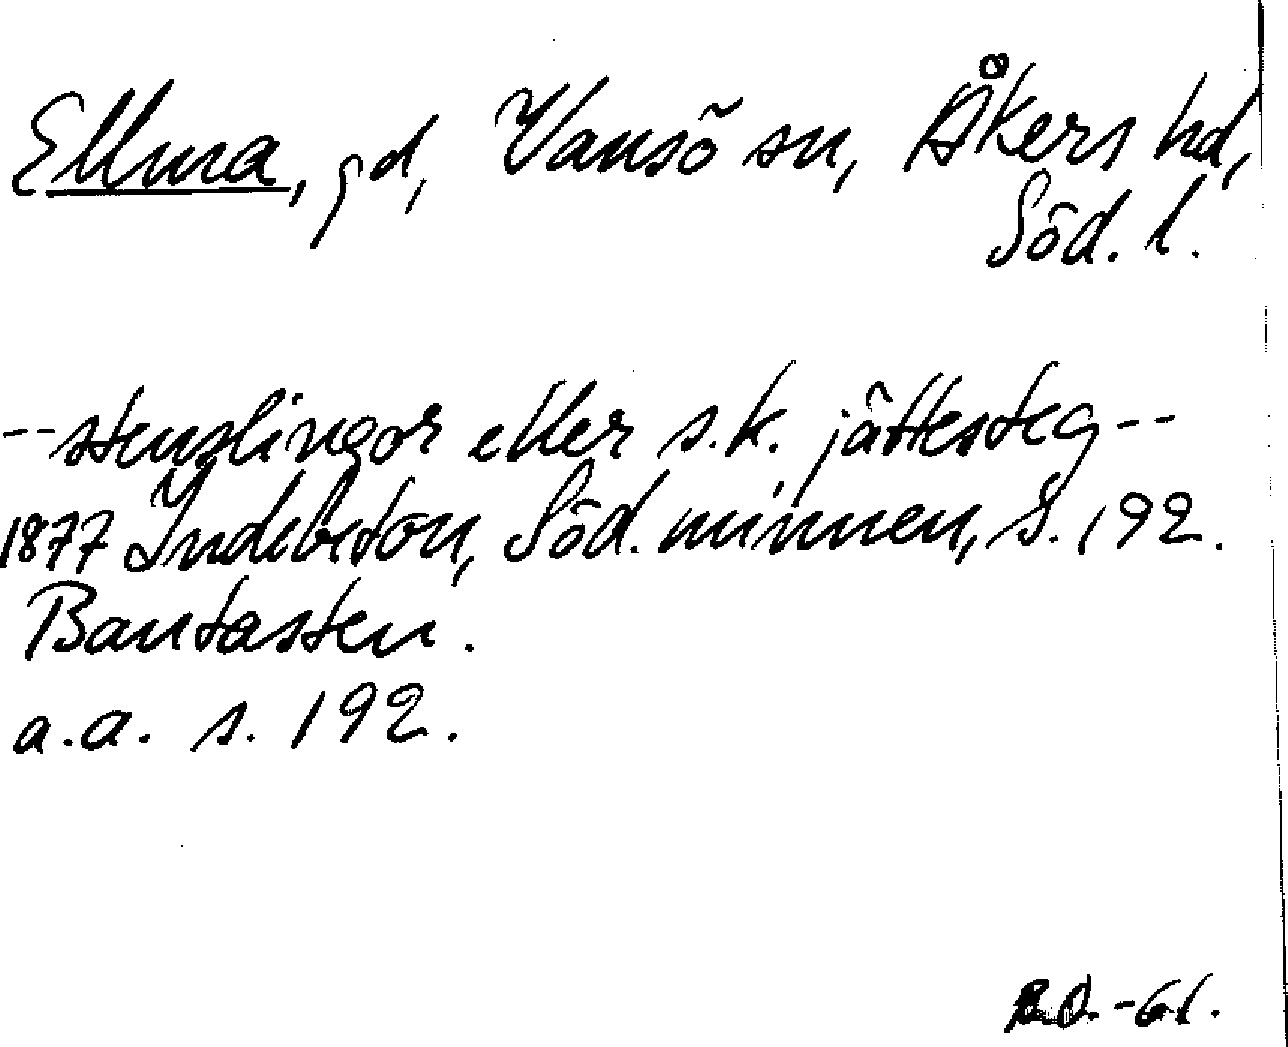 Ellma, gd, Vansö sn, Åkers hd,
Söd. l.
-- stenslingor eller s.k. jättesteg --
1877 Indebetou, Söd. minnen, s. 192.
Bautasten.
a.a. s. 192.
B.O. -61.